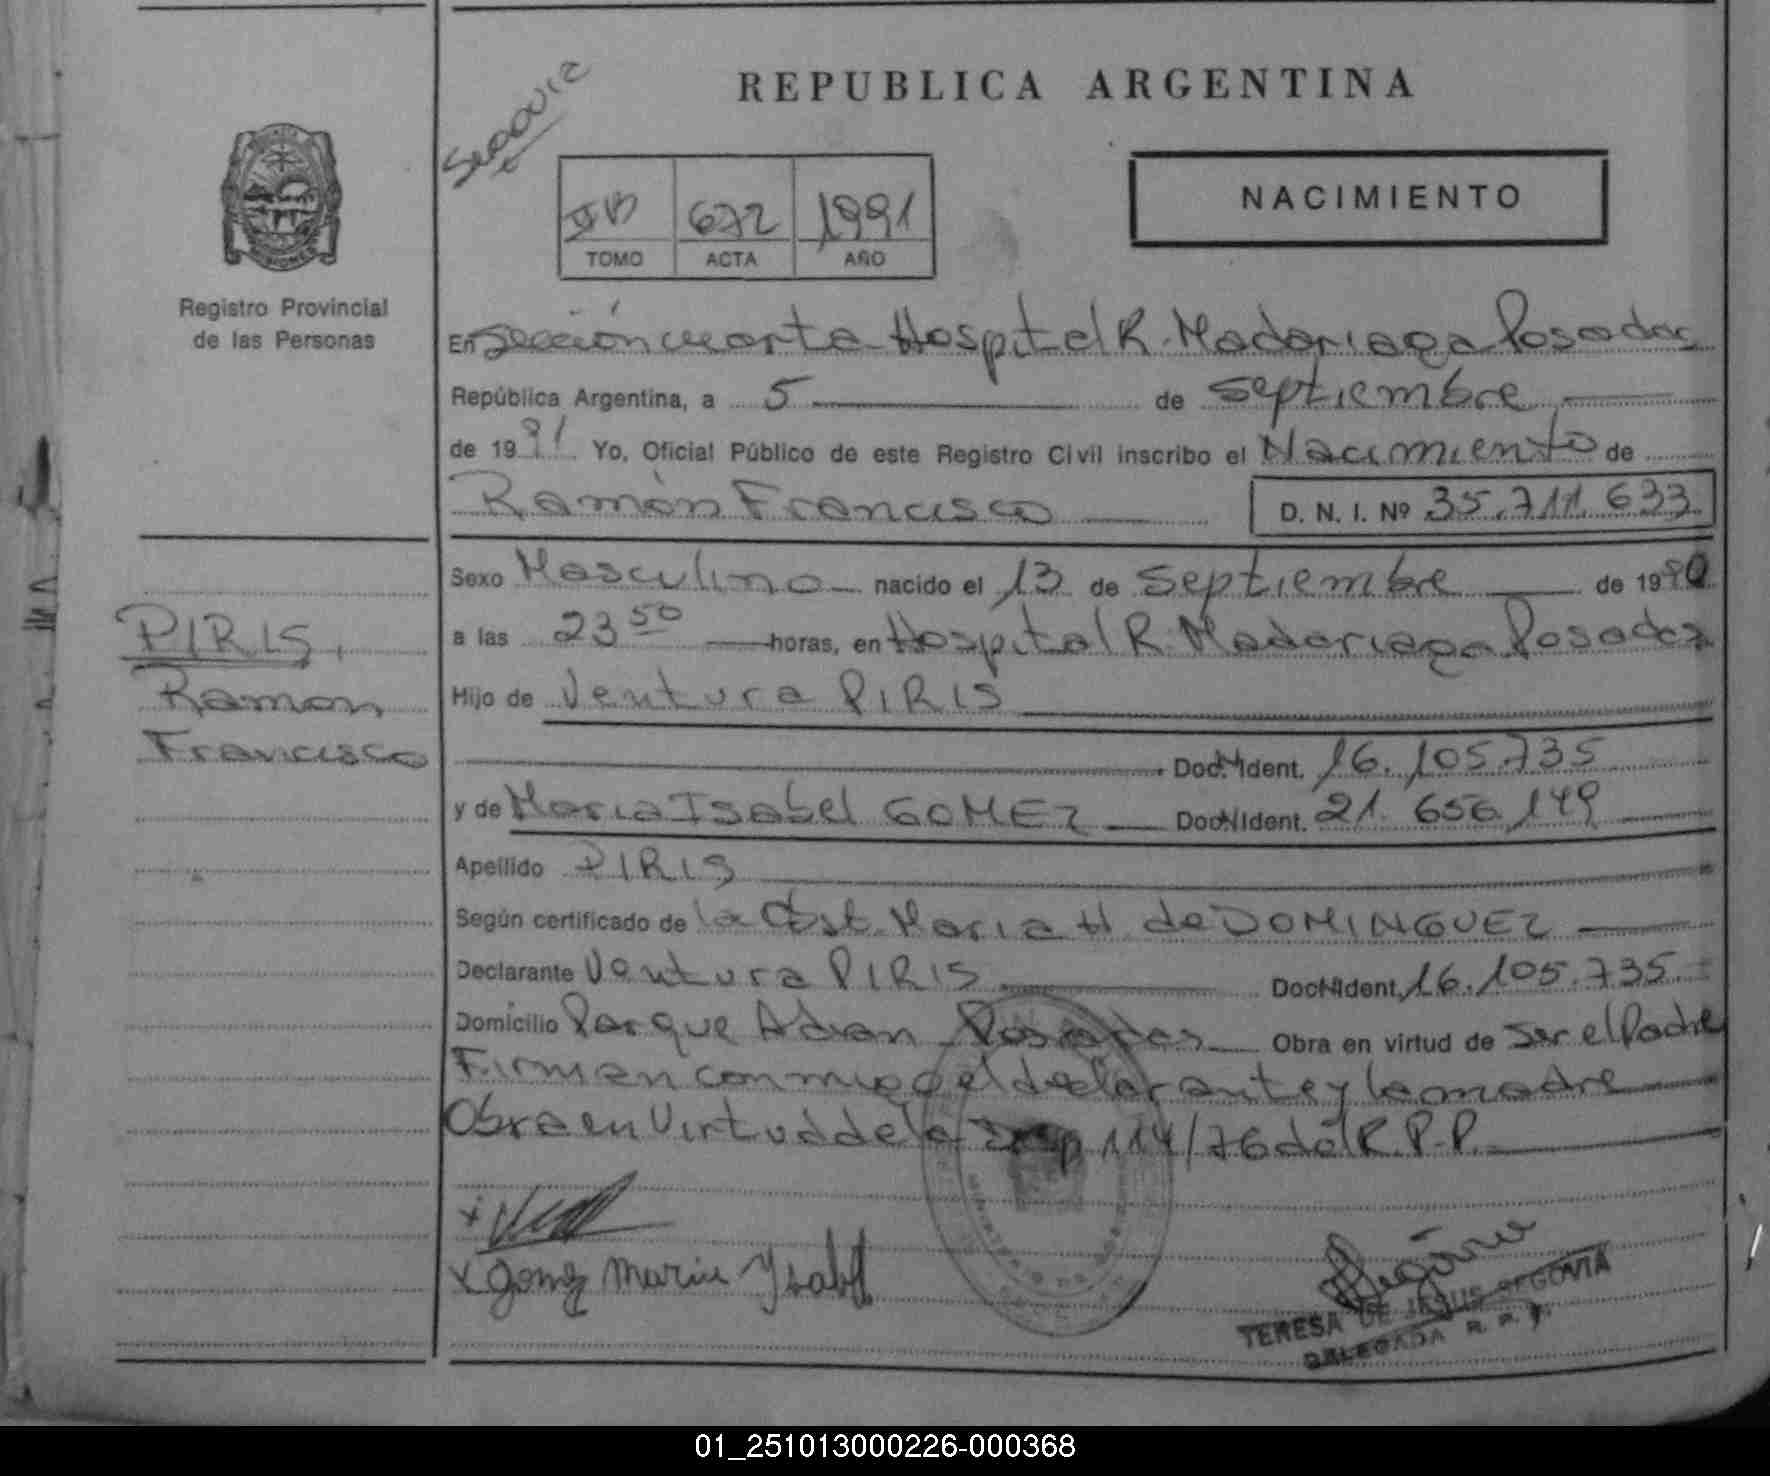 Segovia
REPUBLICA ARGENTINA
NACIMIENTO
IIB 672 1991
TOMO ACTA AÑO
Registro Provincial
de las Personas
En Sección cuarta Hospital R. Madariaga Posadas
República Argentina, a 5 de septiembre
de 1991. Yo, Oficial Público de este Registro Civil inscribo el Nacimiento de
Ramón Francisco D. N. I. Nº 35.711.633
Sexo Masculino nacido el 13 de Septiembre de 1990
a las 23 50 horas, en Hospital R. Madariaga Posadas
Hijo de Ventura PIRIS
Doc. Ident. 16.105.735
y de Maria Isabel GOMEZ Doc Ident. 21.656.149
Apellido PIRIS
Según certificado de la Obst. Maria H. de DOMINGUEZ
Declarante Ventura PIRIS Doc Ident. 16.105.735
Domicilio Parque Adan Posadas Obra en virtud de Ser el Padre
Firman conmigo el declarante y la madre
Obra en Virtud de la Disp 114/76 del R.P.P.
PIRIS,
Ramon
Francisco
x
x Gomez Maria Ysabel
TERESA DE JESUS SEGOVIA
DELEGADA R. P. P.
01_251013000226-000368